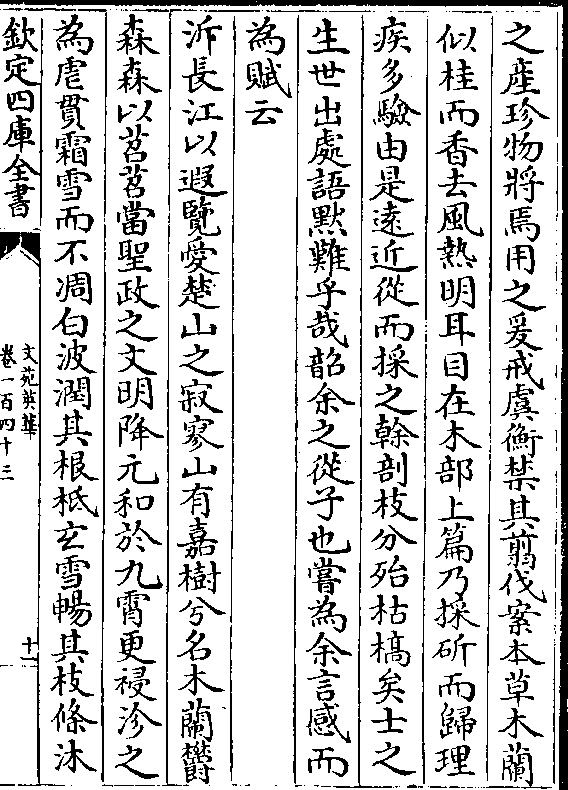 之産珍物將焉用之爰戒虞衡禁其翦伐案本草木蘭
似桂而香去風熱明耳目在木部上篇乃採斫而歸理
疾多驗由是遠近從而採之榦剖枝分殆枯槁矣士之
生世出處語黙難乎哉韶余之從子也嘗為余言感而
為賦云
泝長江以遐覽愛楚山之寂寥山有嘉樹兮名木蘭欝
森森以苕苕當聖政之文明降元和於九霄更祲沴之
為虐貫霜雪而不凋白波潤其根柢玄雪暢其枝條沐
欽定四庫全書
文苑英華
卷一百四十三
十一